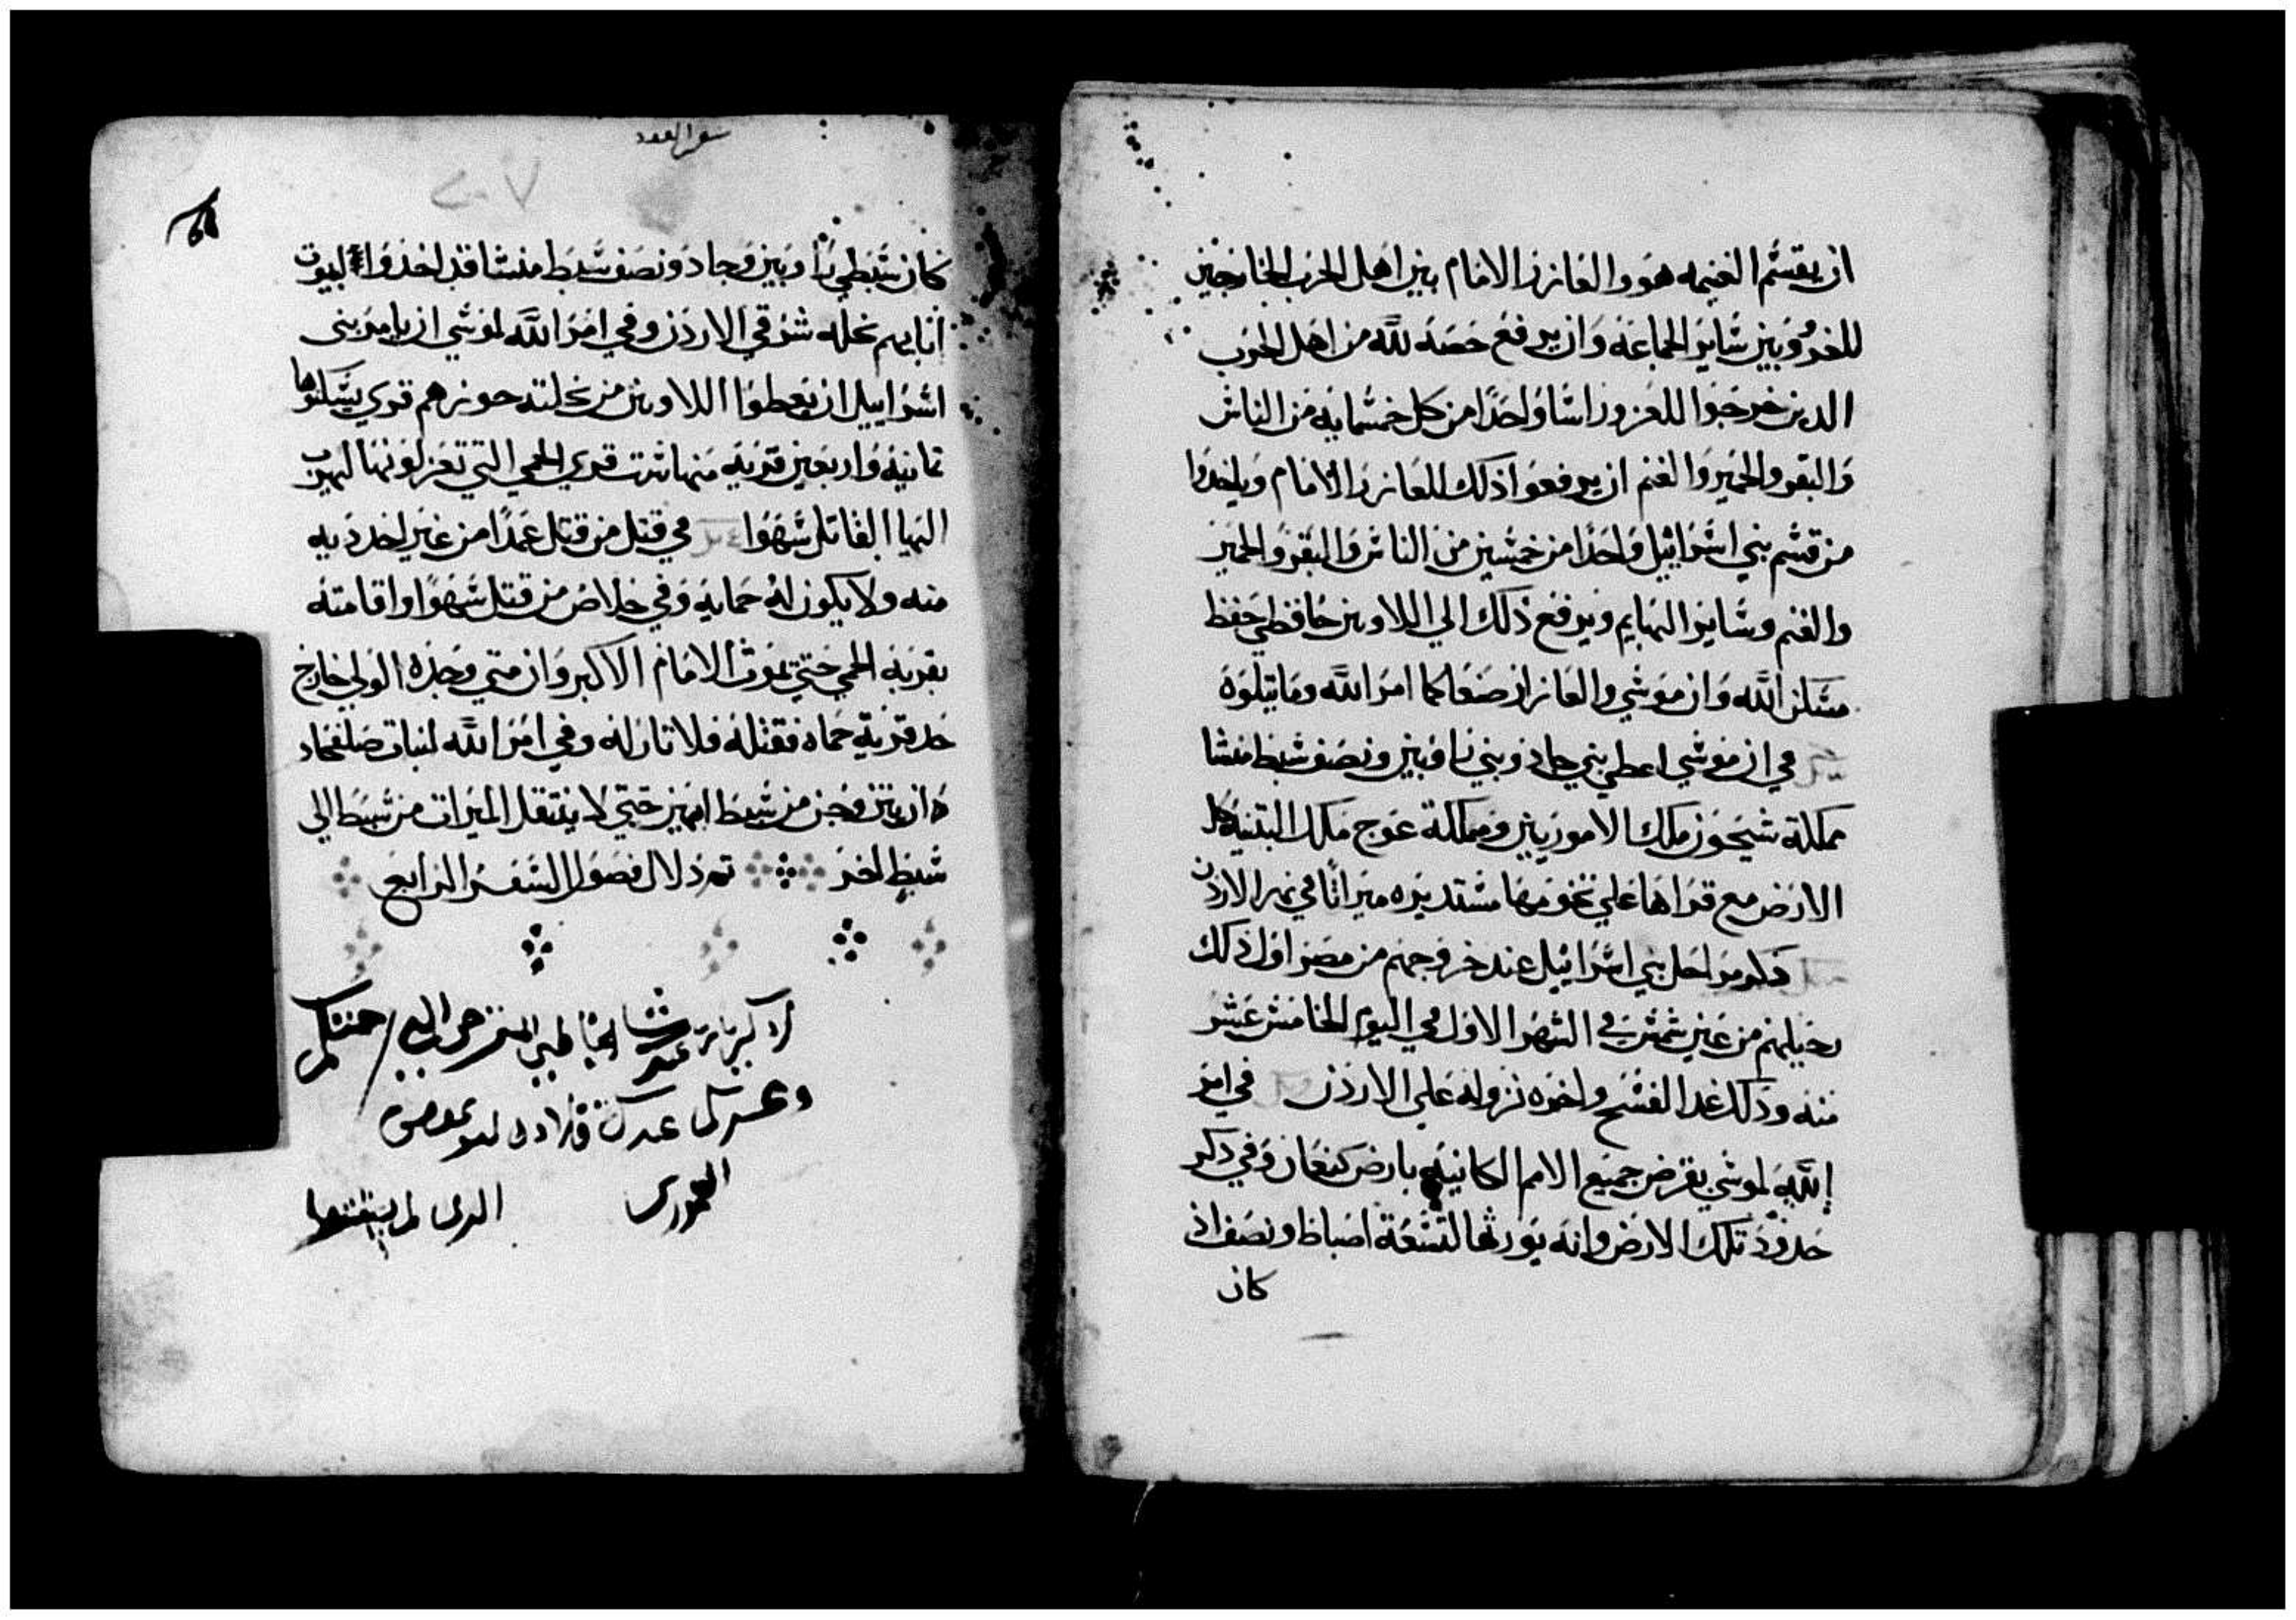 ان يقسم الغنيمه هو والعازر الامام بين اهل الحرب الخارجين
للغزو وبين ساير الجماعه وان يرفع حصه لله من اهل الحرب
الدين خرجوا للغزو راسا واحدا من كل خمسمايه من الناس
والبقر والحمير والغنم ان يرفعوا ذلك للعازر الامام وياخدوا
من قسم بني اسراييل واحدا من خمسين من الناس والبقر والحمير
والغنم وساير البهايم ويرفع ذلك الي اللاويين حافظي حفظ
مسكن الله وان موسي والعازار صنعا كما امر الله وما يتلوه
في ان موسي اعطي بني جاد وبني راوبين ونصف سبط منشا
مملكة سيحون ملك الاموريين ومملكة عوج ملك البتنيه كل
الارض مع قراها علي تخومها مستديره ميراثا في نهر الاردن
دكر مراحل بني اسراييل عند خروجهم من مصر اول ذلك
رحيلهم من عين شمس في الشهر الاول في اليوم الخامس عشر
منه وذلك غد الفسح واخره نزوله علي الاردن في امر
الله لموسي بقرض جميع الامم الكاينه بارض كنعان وفي دكر
حدود تلك الارض وانه يورثها لتسعة اصباط ونصف اذ
كان
سفر العدد
٢٠٧
كان سبطي راوبين وجاد ونصف سبط منشا قد اخذوا لبيوت
ابايهم نحله شرقي الاردن وفي امر الله لموسي ان يامر بني
اسراييل ان يعطوا اللاويين من نحلت حوزهم قري يسكنوها
ثمانيه واربعين قريه منها ست قري الحمي التي تعزلونها ليهرب
اليها القاتل سهوا في قتل من قتل عمدا من غير اخد ديه
منه ولا يكون له حمايه وفي خلاص من قتل سهوا واقامته
بقرية الحمي حتي يموت الامام الاكبر وان متي وجده الولي خارج
حد قرية حماه فقتله فلا ثار له وفي امر الله لبنات صلفحاد
ان يتزوجن من سبط ابيهن حتي لا ينتقل الميراث من سبط الي
سبط اخر تم دلال فصول السفر الرابع
اذكر يا رب عبدك الخاطي